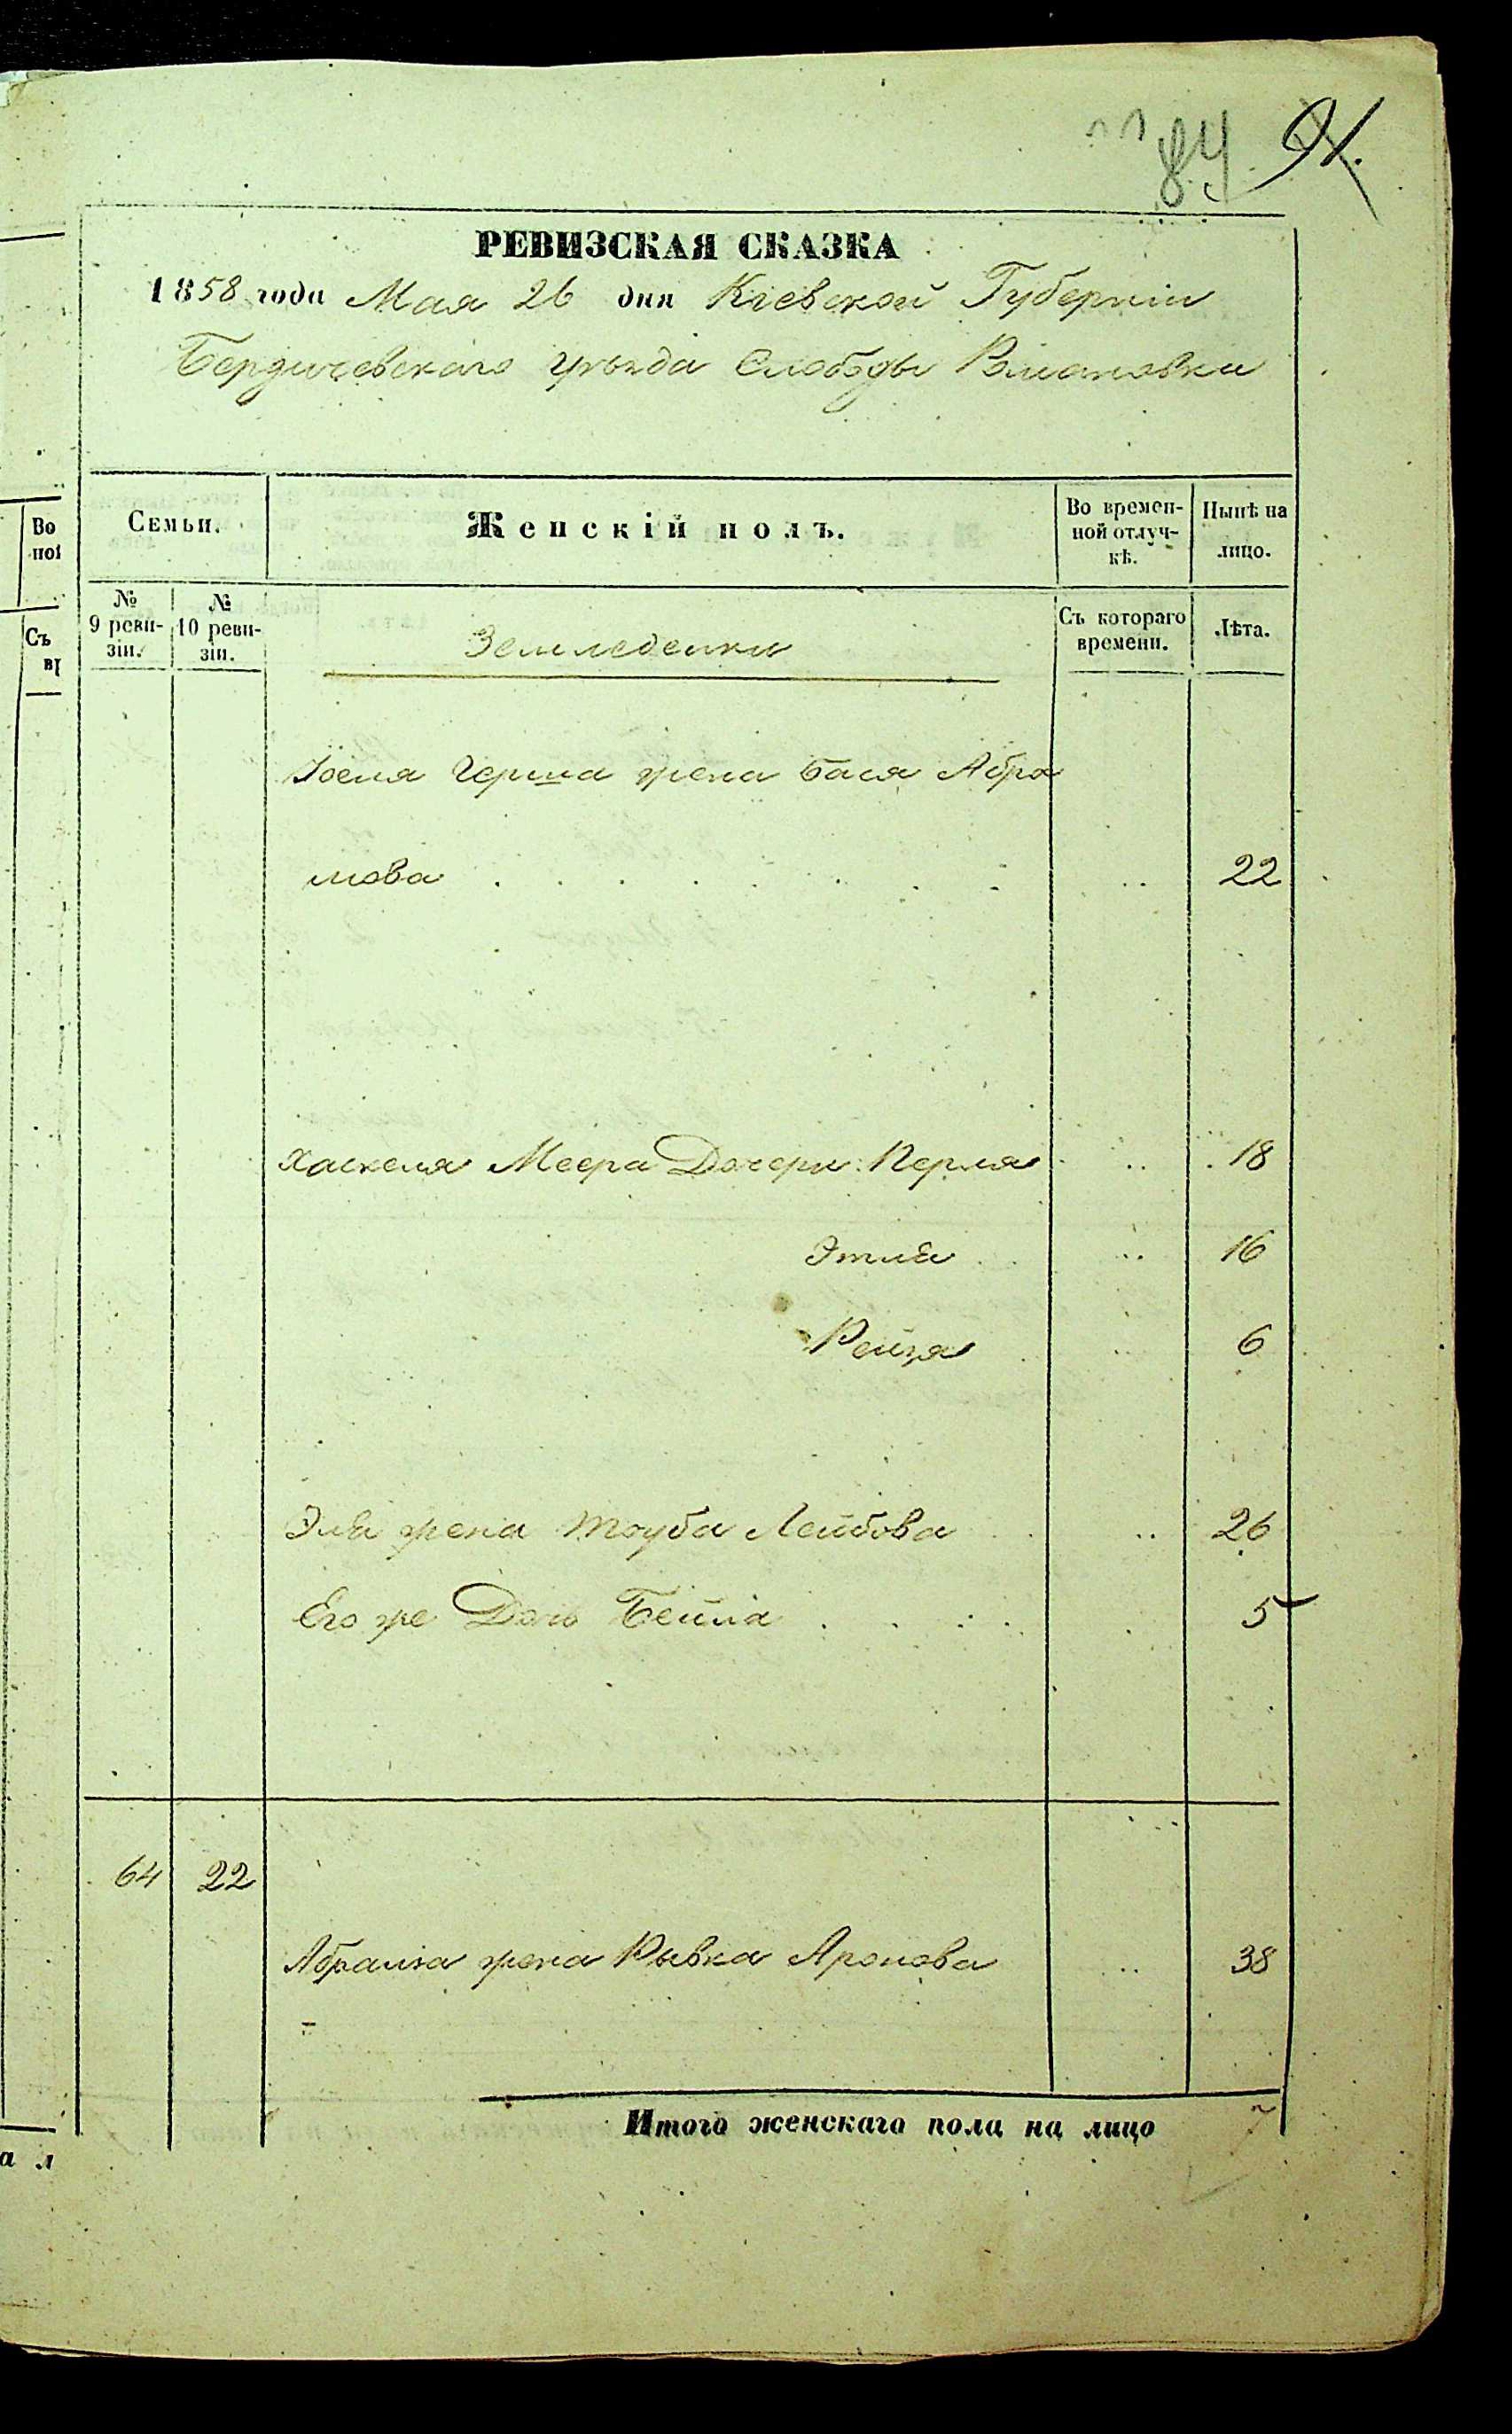 84 91.
РЕВИЗСКАЯ СКАЗКА
1858 года Мая 26 дня Кіевской Губерніи
Бердичевскаго уѣзда Слободы Романовки
Во
Семьи.
Женскій полъ.
Во времен-
ной отлуч-
кѣ.
Нынѣ на
лицо.
№
9 реви-
зіи.
№
10 реви-
зіи.
Земледелки
Съ котораго
времени.
Лѣта.
Съ
Іоеля Герша жена Бася Абра
мова 22
Хаскеля Меера Дочери: Перля 18
Этля 16
Рейзя 6
Эля жена Тауба Лейбова 26
Его же Дочь Бейля 5
64 22
Абрама жена Рывка Аронова 38
Итого женскаго пола на лицо 7